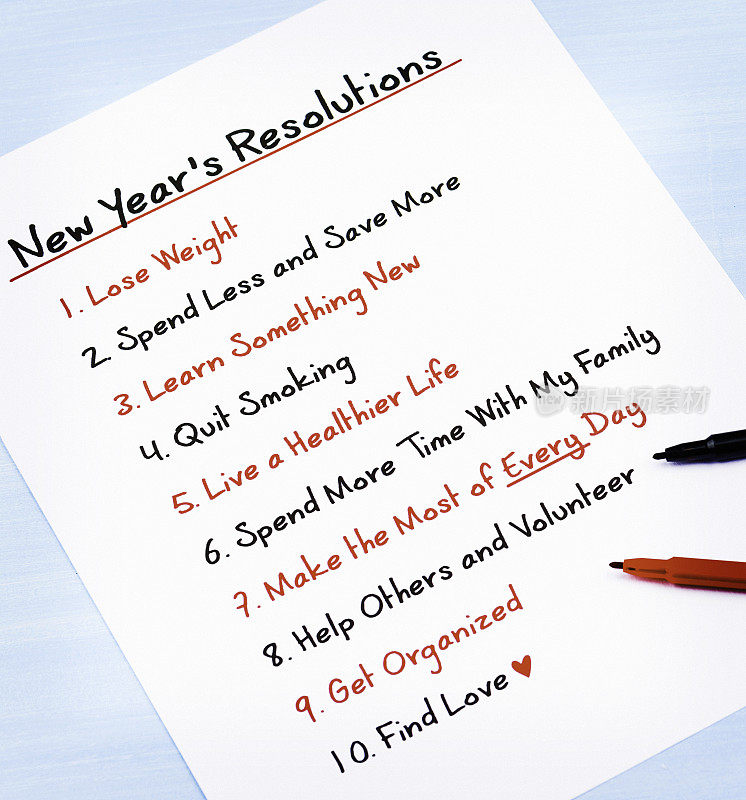 New Year's Resolutions
1. Lose Weight
2. Spend Less and Save More
3. Learn Something New
4. Quit Smoking
5. Live a Healthier Life
6. Spend More Time With My Family
7. Make the Most of Every Day
8. Help Others and Volunteer
9. Get Organized
10. Find Love
新片场素材